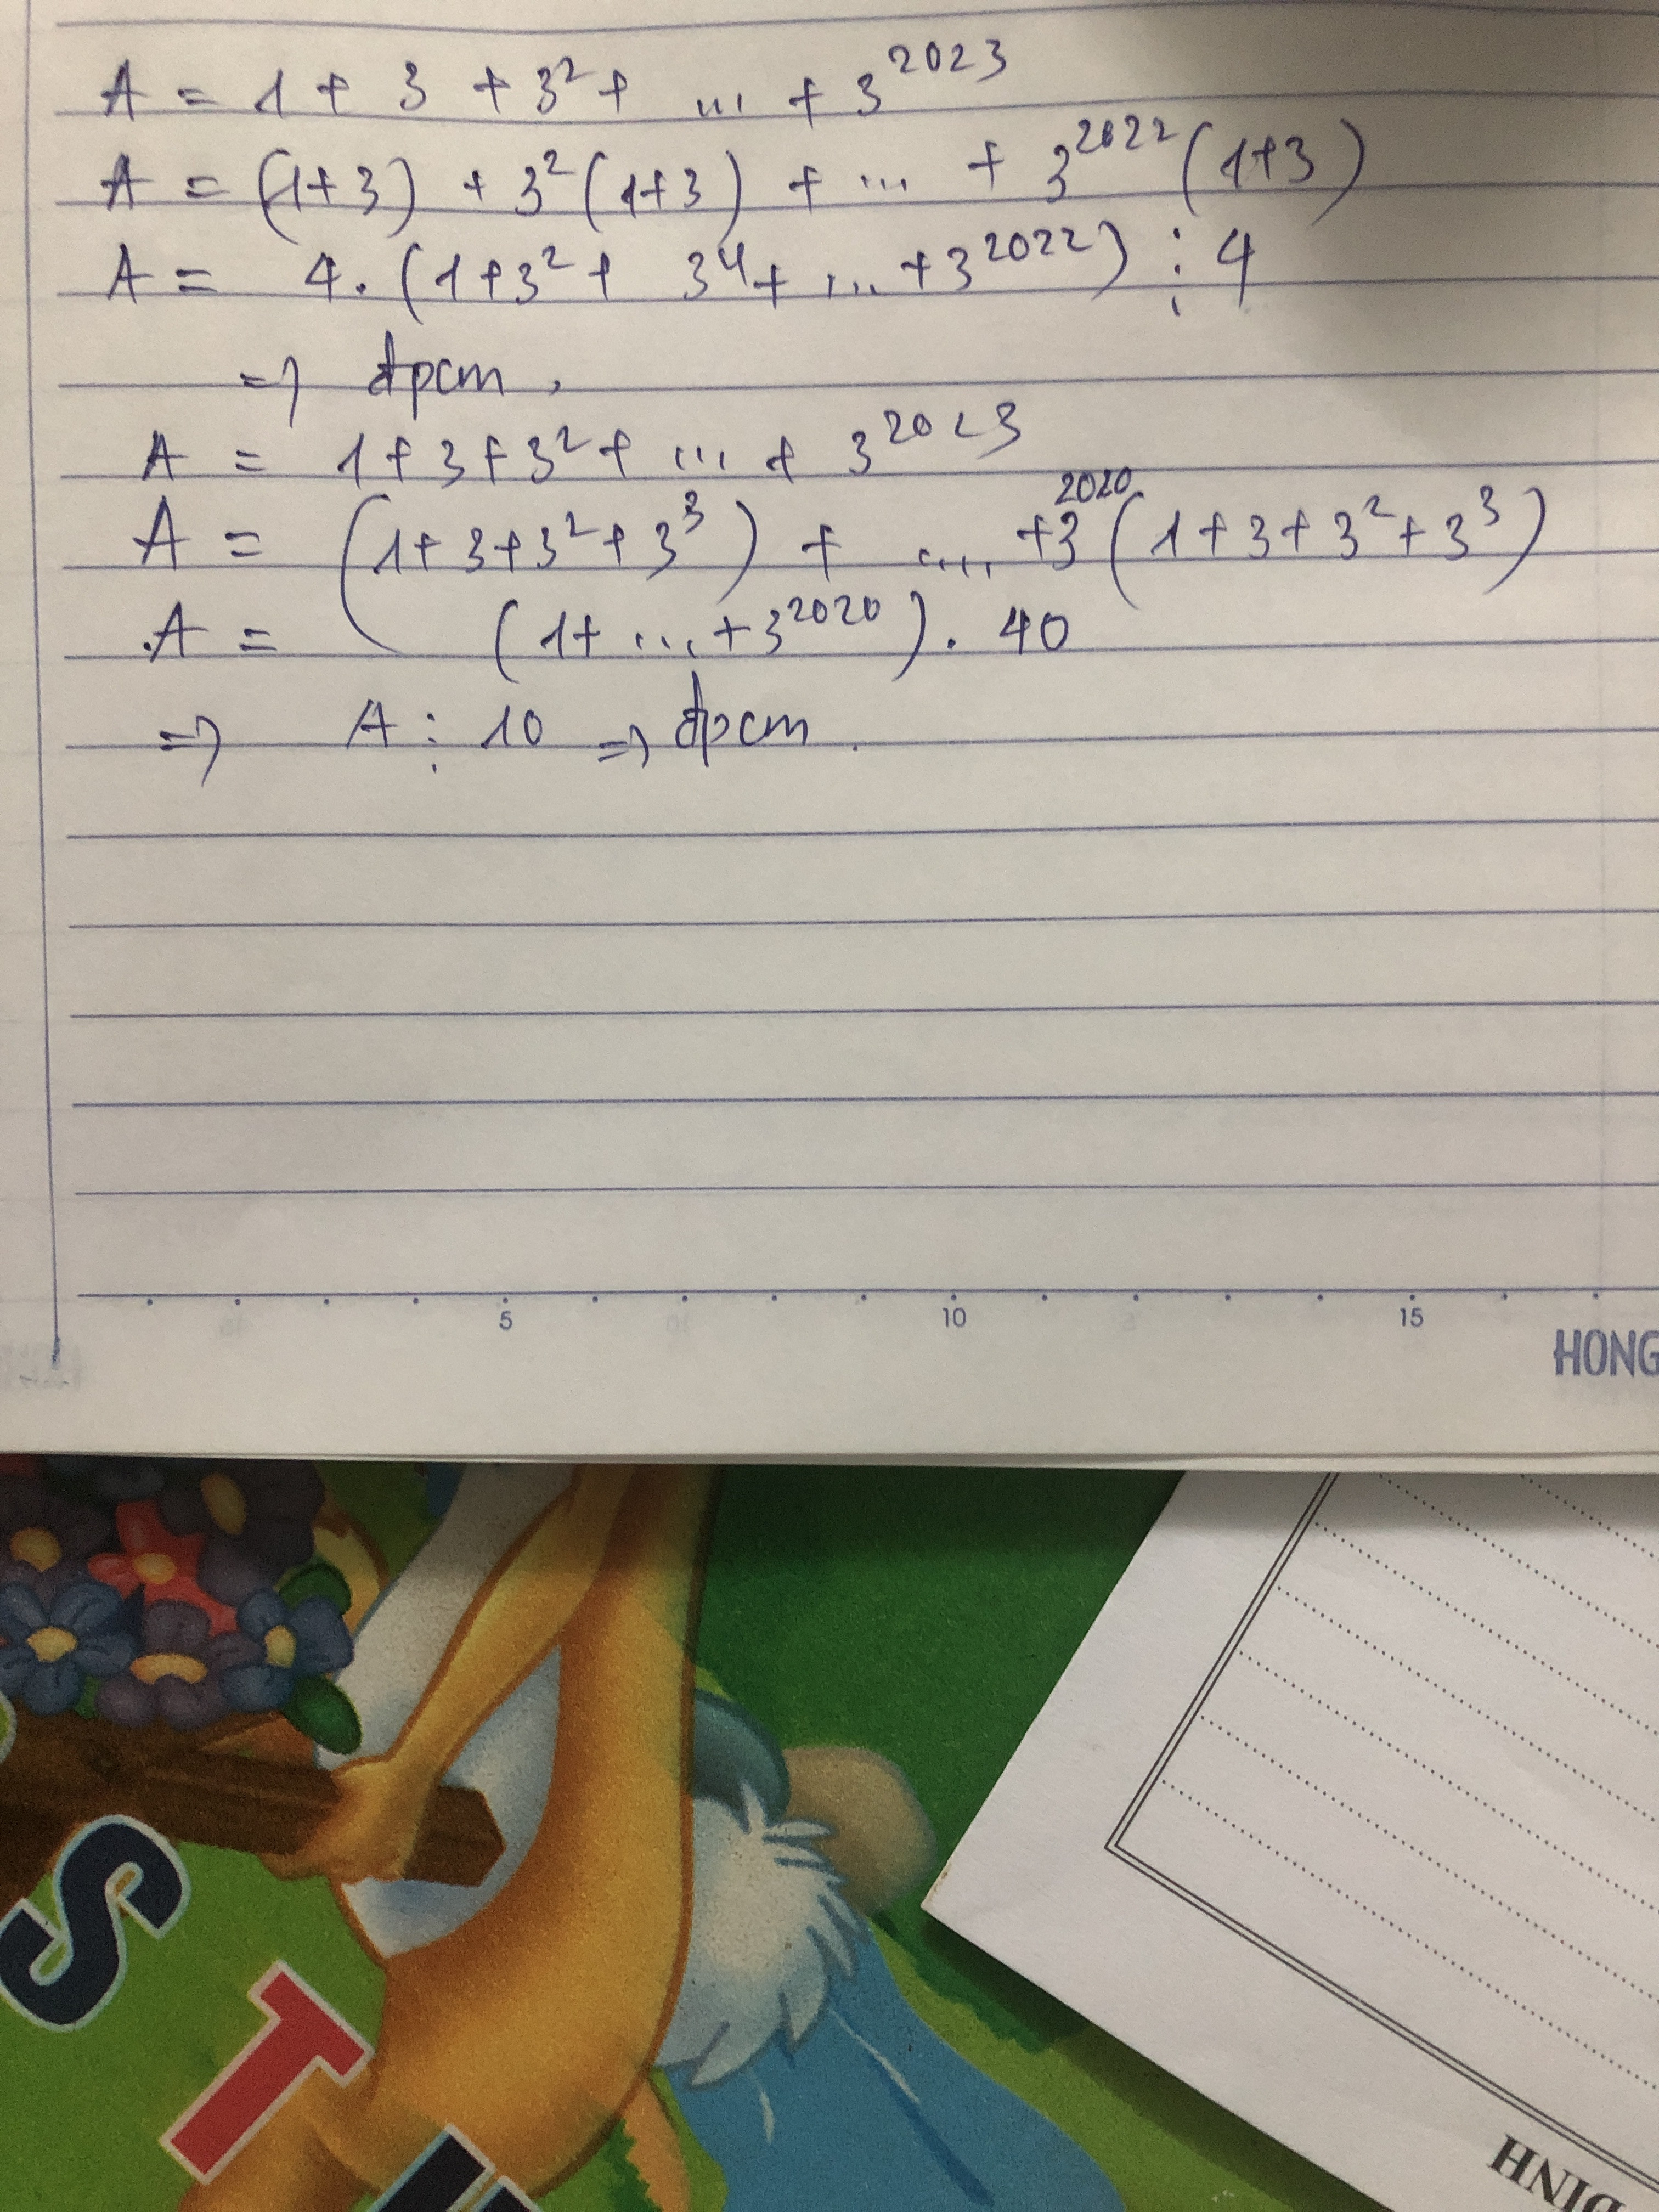 A = 1 + 3 + 3² + ... + 3²⁰²³
A = (1+3) + 3²(1+3) + ... + 3²⁰²²(1+3)
A = 4.(1+3²+ 3⁴+ ... +3²⁰²²) ⋮ 4
=> đpcm.
A = 1+3+3²+ ... + 3²⁰²³
A = (1+3+3²+3³) + .... +3²⁰²⁰(1+3+3²+3³)
A = (1+ ... +3²⁰²⁰). 40
=> A ⋮ 10 => đpcm.
5 10 15
HONG
S
T
DINH